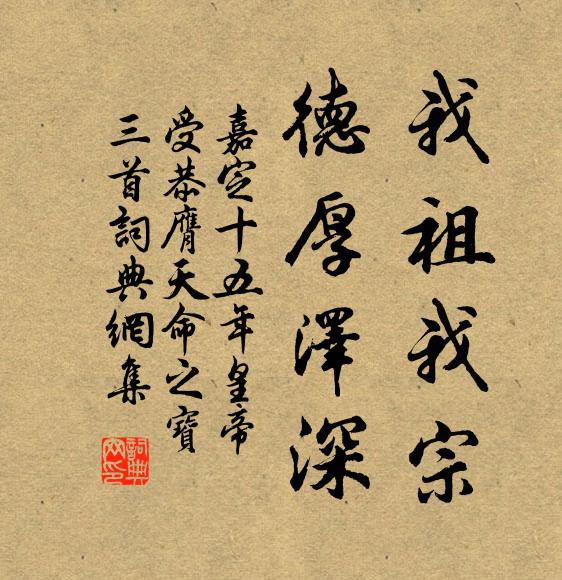 我祖我宗
德厚澤深
嘉定十五年皇帝
受恭膺天命之寶
三首詞典網集
詞典
网印